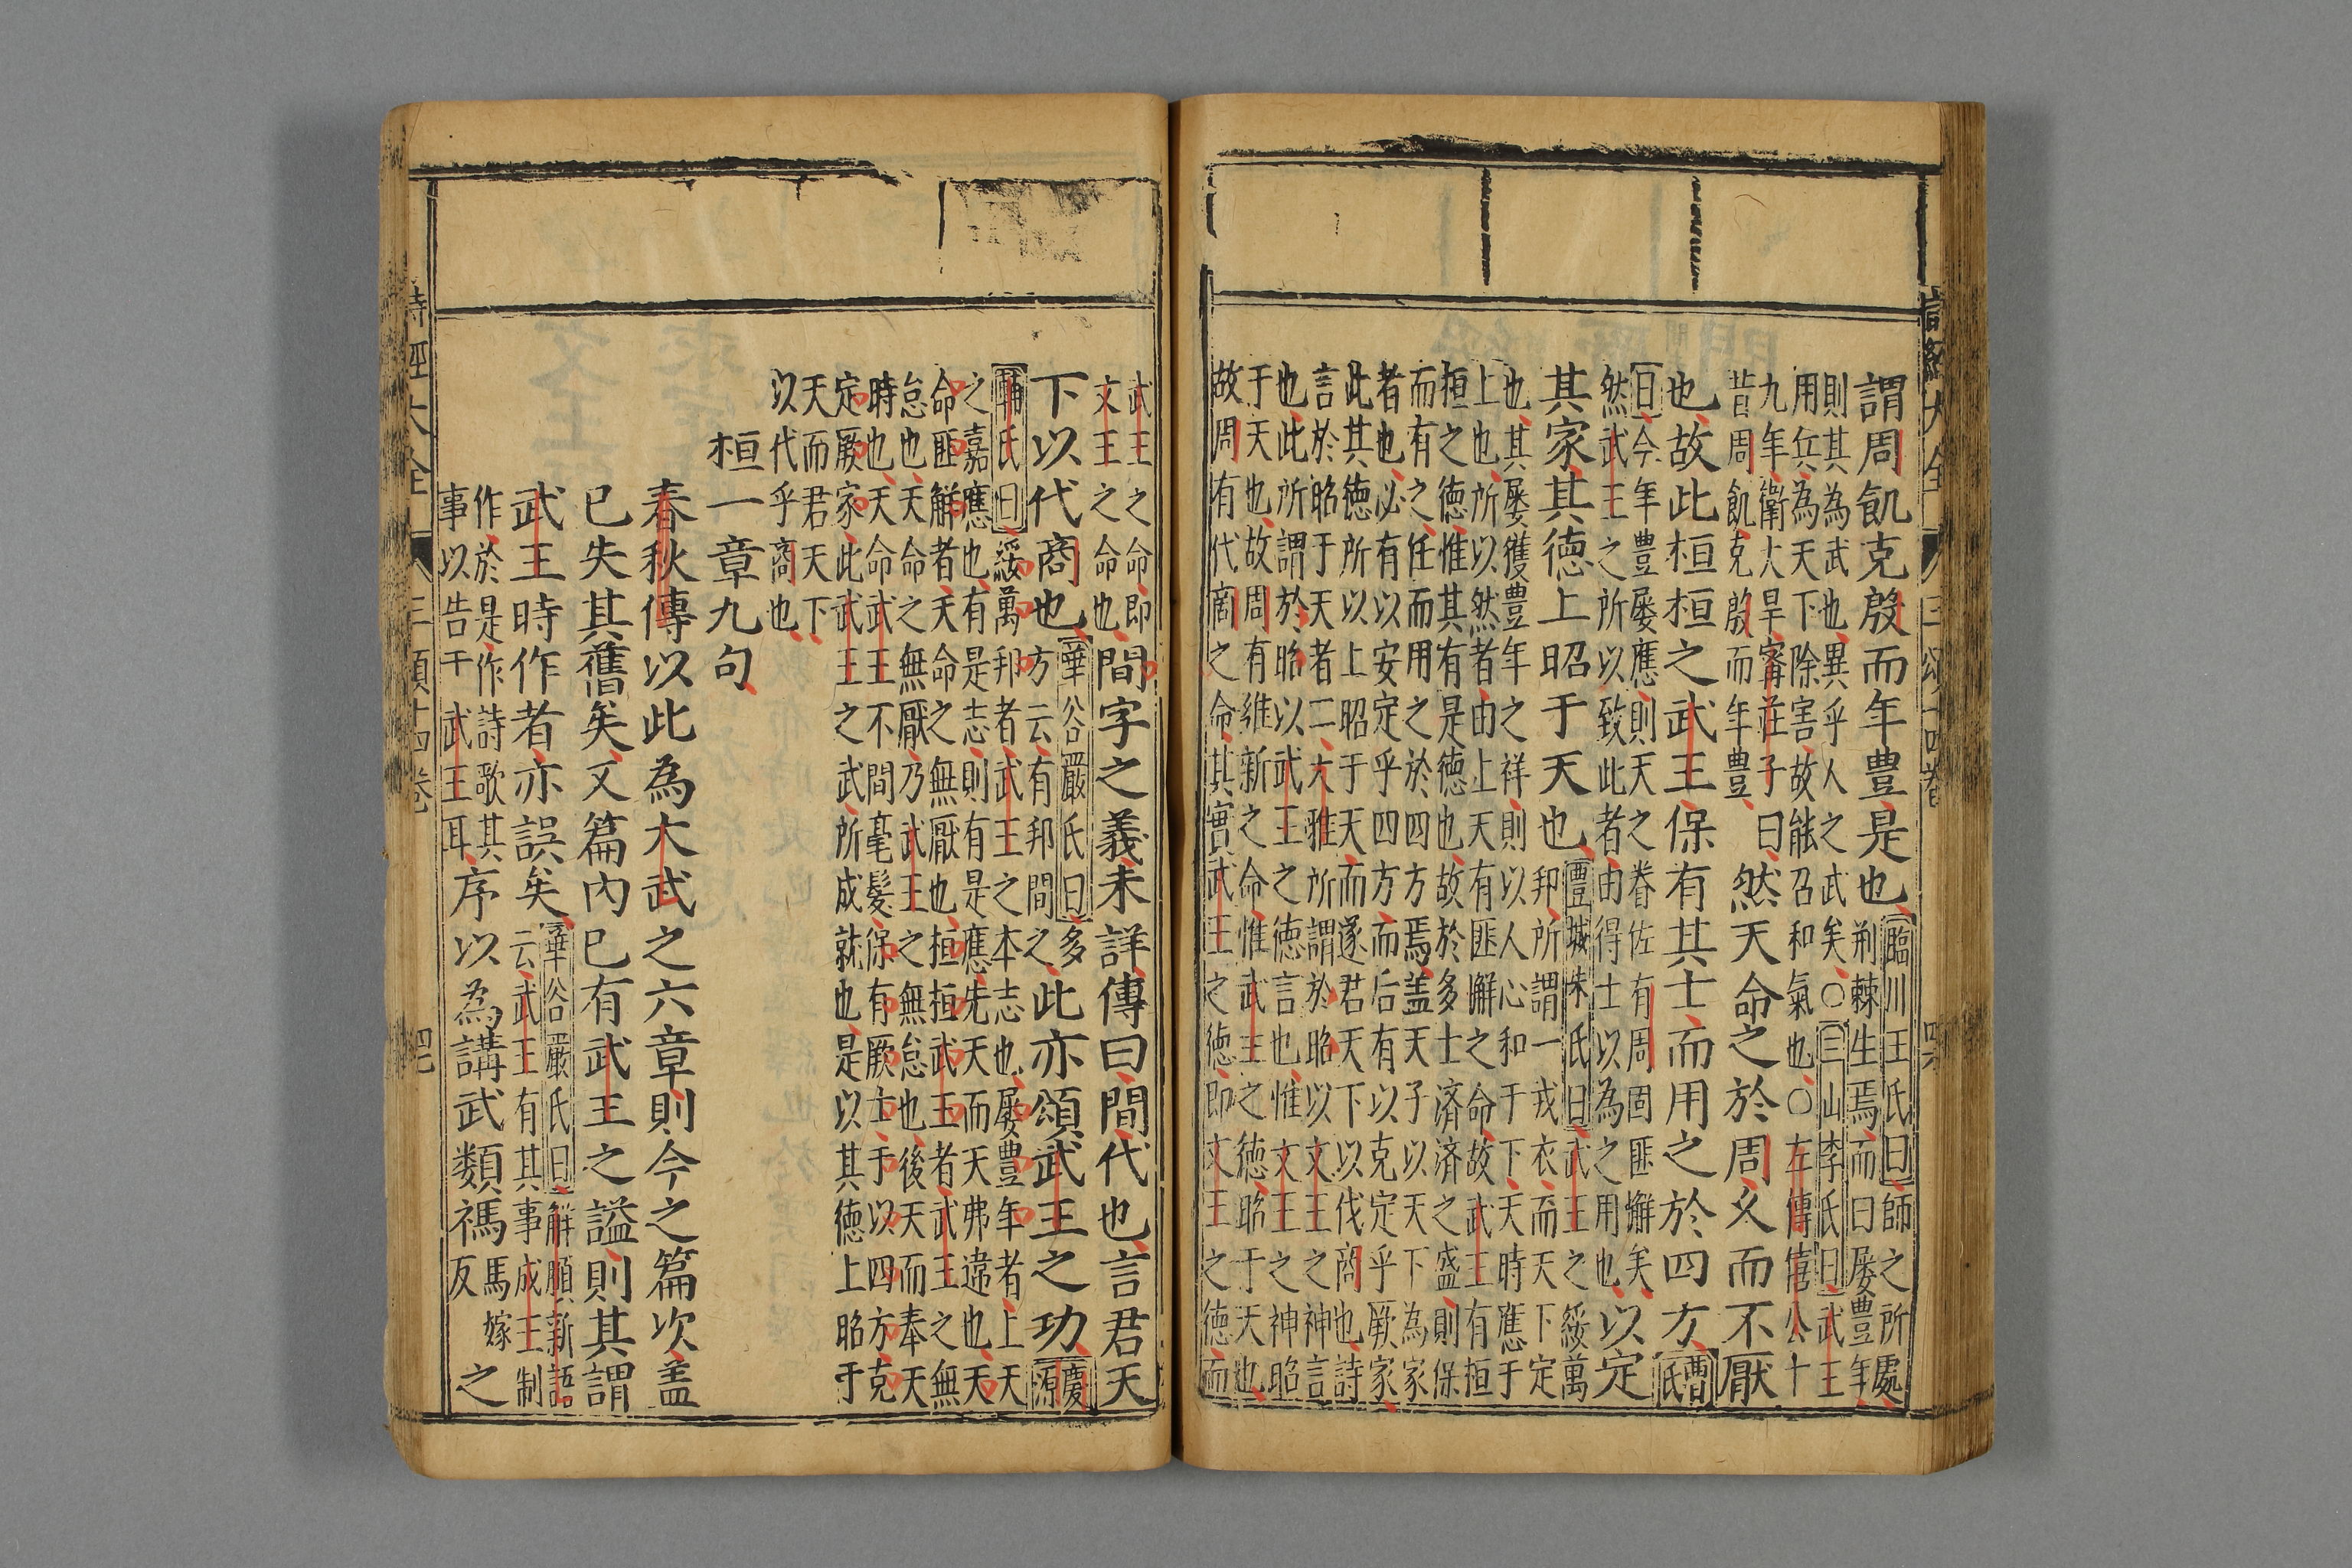 詩經大全 三頌十四卷
謂周飢克殷而年豊是也臨川王氏曰師之所處
荆棘生焉而曰屡豊年
則其為武也異乎人之武矣○三山李氏曰武王
用兵為天下除害故能召和氣也○左傳僖公十
九年衛大旱甯莊子曰
昔周飢克殷而年豊
然天命之於周久而不厭
也故此桓桓之武王保有其士而用之於四方曹氏
曰今年豊屡應則天之眷佐有周固匪懈矣
然武王之所以致此者由得士以為之用也
以定
其家其德上昭于天也豐城朱氏曰武王之綏萬
邦所謂一戎衣而天下定
也其屡獲豊年之祥則以人心和于下天時應于
上也所以然者由上天有匪懈之命故武王有桓
桓之德惟其有是德也故於多士濟濟之盛則保
而有之任而用之於四方焉盖天子以天下為家
者也必有以安定乎四方而后有以克定乎厥家
此其德所以上昭于天而遂君天下以伐商也詩
言於昭于天者二大雅所謂於昭以文王之神言
也此所謂於昭以武王之德言也惟文王之神昭
于天也故周有維新之命惟武王之德昭于天也
故周有代商之命其實武王之德即文王之德而
武王之命即
文王之命也
間字之義未詳傳曰間代也言君天
下以代商也華谷嚴氏曰多
方云有邦間之
此亦頌武王之功慶源
輔氏曰綏萬邦者武王之本志也屡豊年者上天
之嘉應也有是志則有是應先天而天弗違也天
命匪解者天命之無厭也桓桓武王者武王之無
怠也天命之無厭乃武王之無怠也後天而奉天
時也天命武王不間毫髮保有厥士于以四方克
定厥家此武王之武所成就也是以其德上昭于
天而君天下
以代乎商也
桓一章九句
春秋傳以此為大武之六章則今之篇次盖
已失其舊矣又篇內已有武王之謚則其謂
武王時作者亦誤矣華谷嚴氏曰解頤新語
云武王有其事成王制
作於是作詩歌其
事以告于武王耳
序以為講武類禡馬嫁反之
詩經大全 三頌十四卷